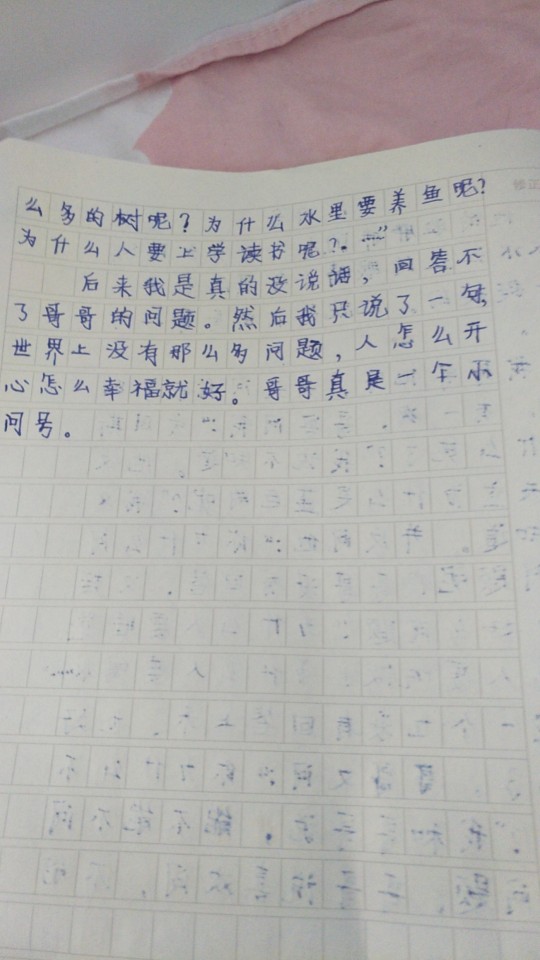 么多的树呢？为什么水里要养鱼呢？
为什么人要上学读书呢？。……”
后来我是真的没说话，回答不
了哥哥的问题。然后我只说了一句，
世界上没有那么多问题，人怎么开
心怎么幸福就好。哥哥真是一个小
问号。